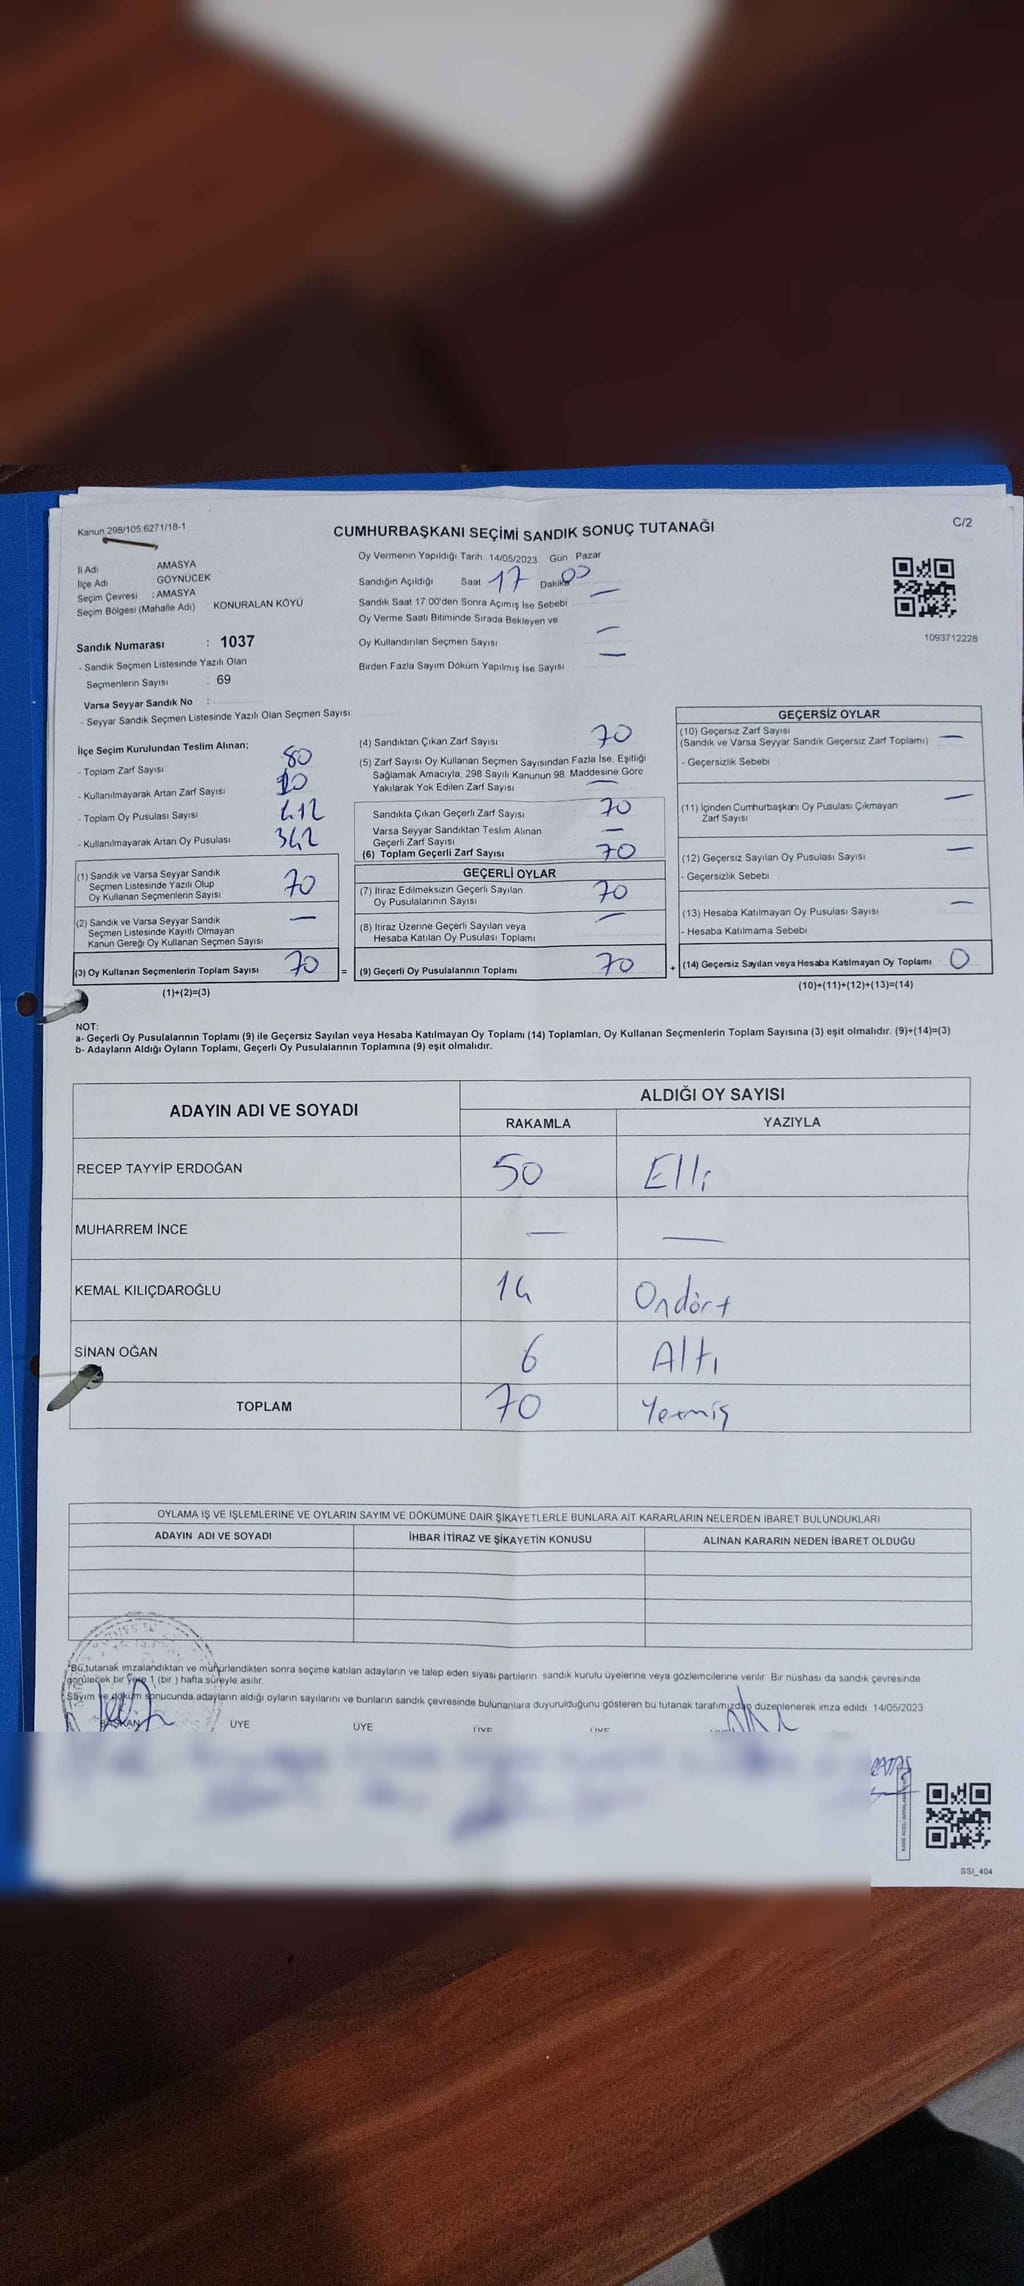 Kanun 298/105.6271/18-1
CUMHURBAŞKANI SEÇİMİ SANDIK SONUÇ TUTANAĞI
C/2
İli Adı AMASYA
İlçe Adı GÖYNÜCEK
Seçim Çevresi : AMASYA
Seçim Bölgesi (Mahalle Adı) KONURALAN KÖYÜ
Sandık Numarası : 1037
- Sandık Seçmen Listesinde Yazılı Olan
Seçmenlerin Sayısı : 69
Varsa Seyyar Sandık No :
- Seyyar Sandık Seçmen Listesinde Yazılı Olan Seçmen Sayısı:
Oy Vermenin Yapıldığı Tarih : 14/05/2023 Gün : Pazar
Sandığın Açıldığı Saat 17 Dakika 00
Sandık Saat 17:00'den Sonra Açımış İse Sebebi —
Oy Verme Saati Bitiminde Sırada Bekleyen ve
Oy Kullandırılan Seçmen Sayısı —
Birden Fazla Sayım Döküm Yapılmış İse Sayısı —
1093712228
İlçe Seçim Kurulundan Teslim Alınan;
- Toplam Zarf Sayısı 80
- Kullanılmayarak Artan Zarf Sayısı 10
- Toplam Oy Pusulası Sayısı 412
- Kullanılmayarak Artan Oy Pusulası 342
(1) Sandık ve Varsa Seyyar Sandık
Seçmen Listesinde Yazılı Olup
Oy Kullanan Seçmenlerin Sayısı 70
(2) Sandık ve Varsa Seyyar Sandık
Seçmen Listesinde Kayıtlı Olmayan
Kanun Gereği Oy Kullanan Seçmen Sayısı —
(3) Oy Kullanan Seçmenlerin Toplam Sayısı 70 =
(1)+(2)=(3)
(4) Sandıktan Çıkan Zarf Sayısı 70
(5) Zarf Sayısı Oy Kullanan Seçmen Sayısından Fazla İse, Eşitliği
Sağlamak Amacıyla, 298 Sayılı Kanunun 98. Maddesine Göre
Yakılarak Yok Edilen Zarf Sayısı —
Sandıkta Çıkan Geçerli Zarf Sayısı 70
Varsa Seyyar Sandıktan Teslim Alınan
Geçerli Zarf Sayısı —
(6) Toplam Geçerli Zarf Sayısı 70
GEÇERLİ OYLAR
(7) İtiraz Edilmeksizin Geçerli Sayılan
Oy Pusulalarının Sayısı 70
(8) İtiraz Üzerine Geçerli Sayılan veya
Hesaba Katılan Oy Pusulası Toplamı —
(9) Geçerli Oy Pusulalarının Toplamı 70 +
GEÇERSİZ OYLAR
(10) Geçersiz Zarf Sayısı
(Sandık ve Varsa Seyyar Sandık Geçersiz Zarf Toplamı) —
- Geçersizlik Sebebi
(11) İçinden Cumhurbaşkanı Oy Pusulası Çıkmayan
Zarf Sayısı —
(12) Geçersiz Sayılan Oy Pusulası Sayısı —
- Geçersizlik Sebebi
(13) Hesaba Katılmayan Oy Pusulası Sayısı —
- Hesaba Katılmama Sebebi
(14) Geçersiz Sayılan veya Hesaba Katılmayan Oy Toplamı 0
(10)+(11)+(12)+(13)=(14)
NOT:
a- Geçerli Oy Pusulalarının Toplamı (9) ile Geçersiz Sayılan veya Hesaba Katılmayan Oy Toplamı (14) Toplamları, Oy Kullanan Seçmenlerin Toplam Sayısına (3) eşit olmalıdır. (9)+(14)=(3)
b- Adayların Aldığı Oyların Toplamı, Geçerli Oy Pusulalarının Toplamına (9) eşit olmalıdır.
ADAYIN ADI VE SOYADI
ALDIĞI OY SAYISI
RAKAMLA YAZIYLA
RECEP TAYYİP ERDOĞAN 50 Elli
MUHARREM İNCE — —
KEMAL KILIÇDAROĞLU 14 Ondört
SİNAN OĞAN 6 Altı
TOPLAM 70 Yetmiş
OYLAMA İŞ VE İŞLEMLERİNE VE OYLARIN SAYIM VE DÖKÜMÜNE DAİR ŞİKAYETLERLE BUNLARA AİT KARARLARIN NELERDEN İBARET BULUNDUKLARI
ADAYIN ADI VE SOYADI İHBAR İTİRAZ VE ŞİKAYETİN KONUSU ALINAN KARARIN NEDEN İBARET OLDUĞU
"Bu tutanak imzalandıktan ve mühürlendikten sonra seçime katılan adayların ve talep eden siyasi partilerin sandık kurulu üyelerine veya gözlemcilerine verilir. Bir nüshası da sandık çevresinde
görülecek bir yere 1 (bir ) hafta süreyle asılır.
Sayım ve döküm sonucunda adayların aldığı oyların sayılarını ve bunların sandık çevresinde bulunanlara duyurulduğunu gösteren bu tutanak tarafımızdan düzenlenerek imza edildi. 14/05/2023
BAŞKAN ÜYE ÜYE ÜYE ÜYE
SSI_404